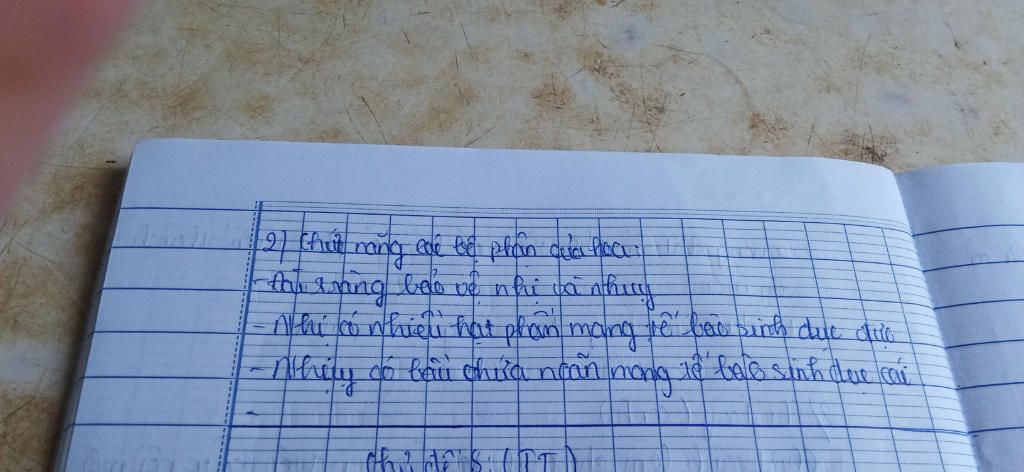 2) Chức năng các bộ phận của hoa:
- đài, tràng bảo vệ nhị và nhụy
- Nhị có nhiều hạt phấn mang tế bào sinh dục đực
- Nhụy có bầu chứa noãn mang tế bào sinh dục cái
-